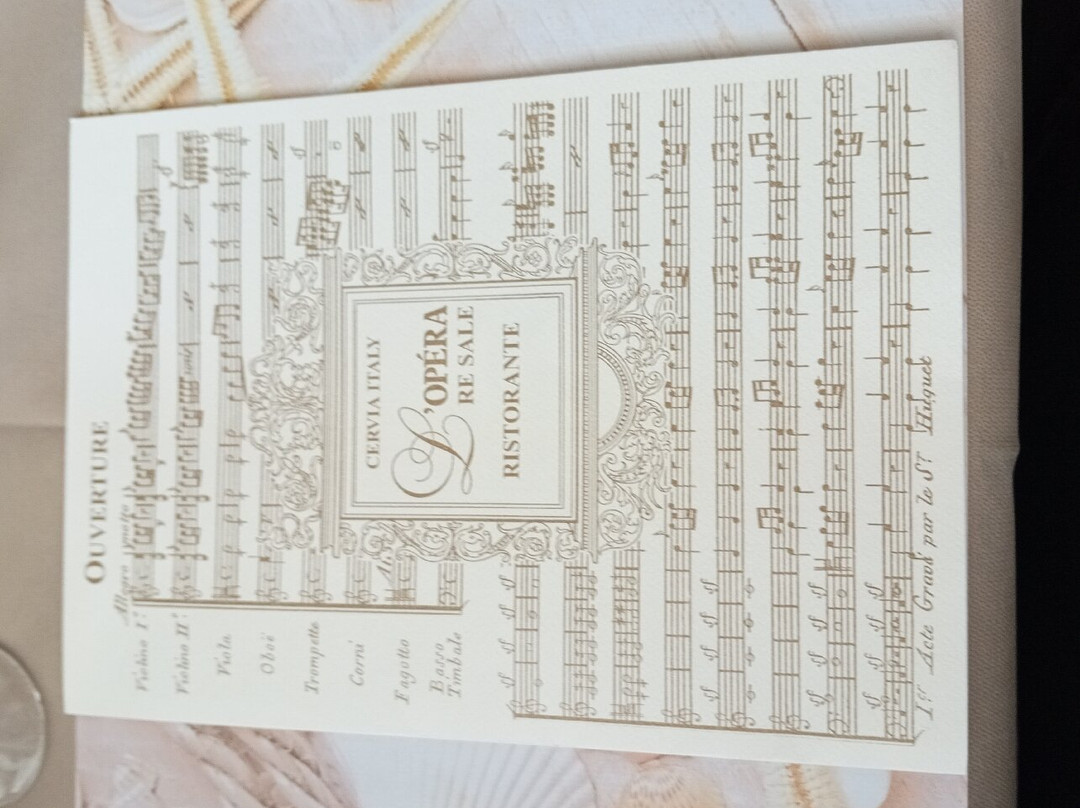 OUVERTURE
Allegro molto
Violino I°
Violino II°
Viola
Oboë
Trompette
Corni
Fagotto
Basso
Timbale
CERVIA ITALY
L'OPÉRA
RE SALE
RISTORANTE
1.er Acte Gravé par le S.r Huguet